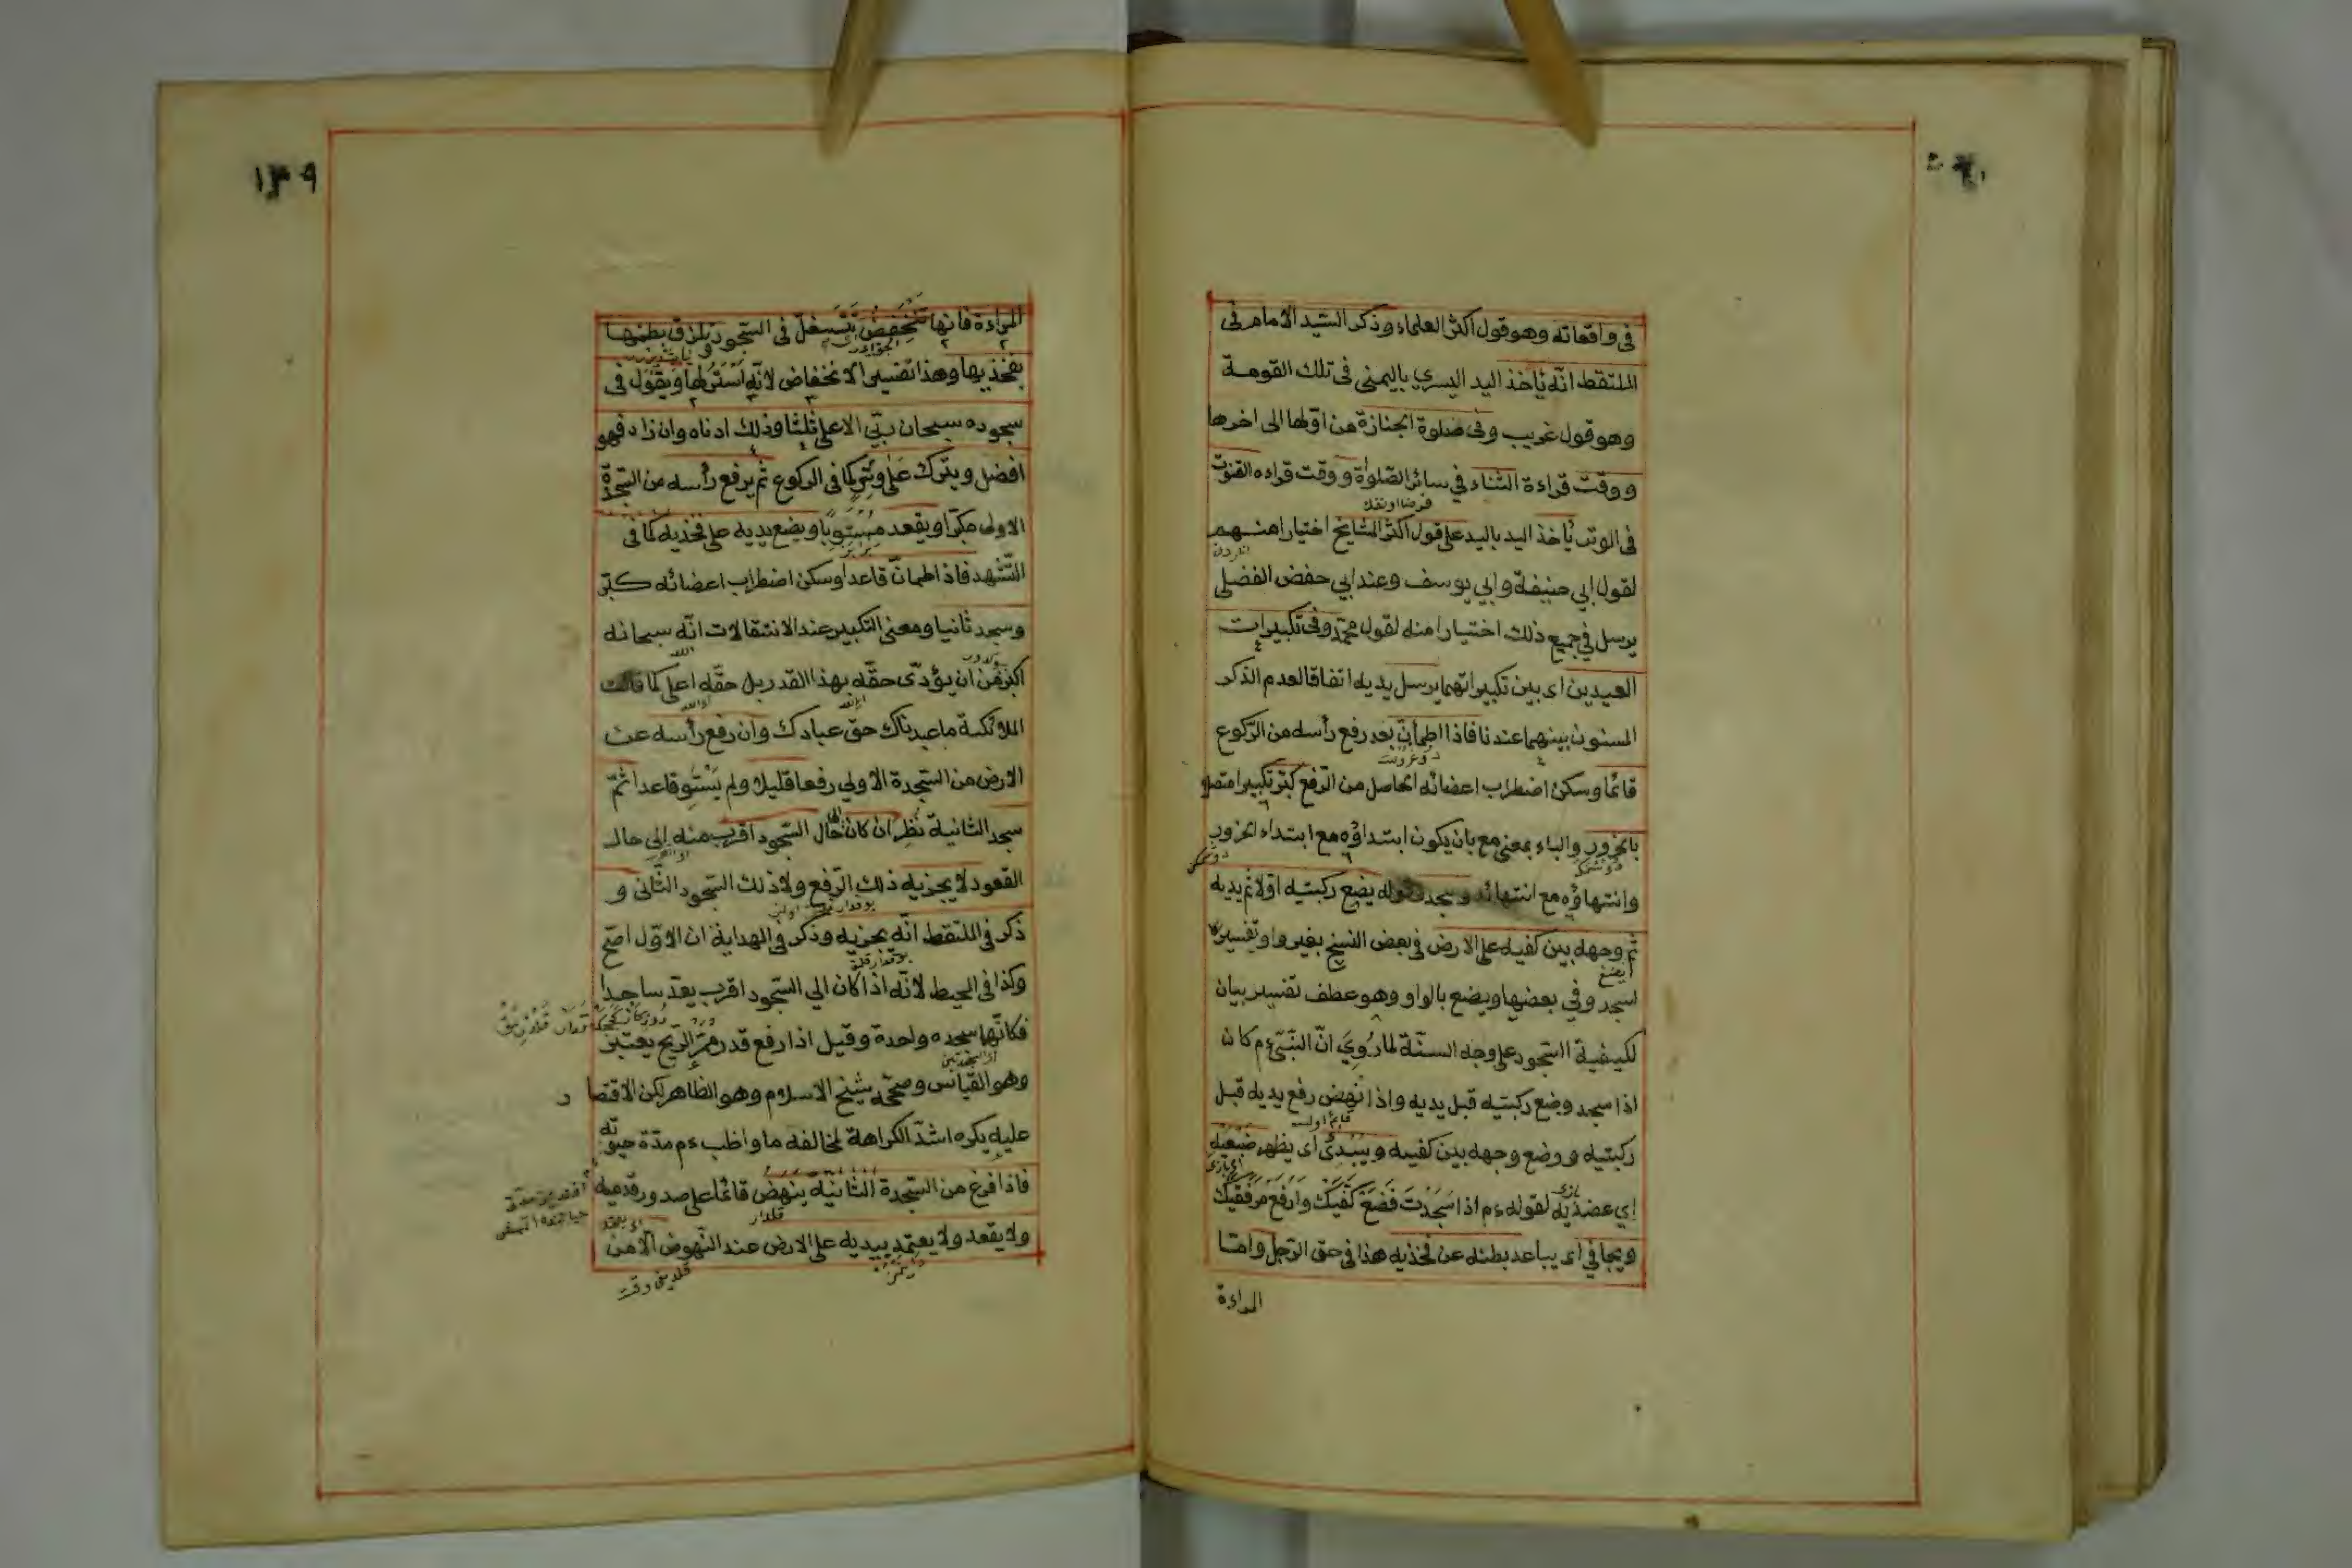 فى واقعاته وهو قول اكثر العلماء وذكر السيد الامام فى
الملتقط انّه يأخذ اليد اليسري باليمنى فى تلك القومة
وهو قول غريب وفى صلوة الجنازة من اوّلها الى اخرها
ووقت قراءة الثناء في سائر الصّلوة ووقت قراءة القنوت
فرضا او نفلا
فى الوتر يأخذ اليد باليد على قول اكثر المشايخ اختيارا منهم
لقول ابي حنيفة وابي يوسف وعند ابي حفص الفضلى
يرسل في جميع ذلك اختيارا منه لقول محمّد وفى تكبيرات
العيدين اى بين تكبيراتهما يرسل يديه اتفاقا لعدم الذكر
المسنون بينهما عندنا فاذا اطمأنّ بعد رفع رأسه من الرّكوع
قائما وسكن اضطراب اعضائه الحاصل من الرّفع كبّر تكبيرا متصلا
بالخرور والباء بمعنى مع بان يكون ابتداؤه مع ابتداء الخرور
وانتهاؤه مع انتهائه وسجد يضع ركبتيه اوّلا ثم يديه
ثمّ وجهه بين كفيه على الارض فى بعض النسخ بغير واو تفسيرا
اسجد وفي بعضها ويضع بالواو وهو عطف تفسير بيان
لكيفية السّجود على وجه السنّة لما رُوِيَ انّ النّبىّ ءم كان
اذا سجد وضع ركبتيه قبل يديه واذا نهض رفع يديه قبل
ركبتيه ووضع وجهه بين كفيه ويُبدئ اى يظهر ضبعيه
اي عضديه لقوله ءم اذا سَجَدْتَ فَضَعْ كَفَّيْكَ وارْفَعْ مِرْفَقَيْكَ
ويجافي اى يباعد بطنه عن فخذيه هذا فى حق الرّجل وامّا
المراءة
١٣٩
المراءة فانها تنخفض تتسفل فى السّجود وتلزق بطنها
بفخذيها وهذا تفسير الانخفاض لانّه استر لها ويقول فى
سجوده سبحان ربّي الاعلى ثلثا وذلك ادناه وان زاد فهو
افضل ويترك على وتر كما فى الركوع ثم يرفع رأسه من السّجدة
الاولى مكبّرا ويقعد مستويا ويضع يديه على فخذيه كما فى
التّشهد فاذا اطمانّ قاعدا وسكن اضطراب اعضائه كبّر
وسجد ثانيا ومعنى التكبير عند الانتقالات انّه سبحانه
اكبر من ان يؤدّى حقّه بهذا القدر بل حقّه اعلى كما قالت
الملائكة ما عبدناك حقّ عبادتك وان رفع رأسه عن
الارض من السّجدة الاولي رفعا قليلا ولم يستو قاعدا ثمّ
سجد الثانية نُظِر ان كان الى حال السّجود اقرب منه الى حال
القعود لا يجزيه ذلك الرّفع ولا ذلك السّجود الثّانى و
ذكر فى الملتقط انّه يجزيه وذكر فى الهداية ان الاوّل اصحّ
وكذا فى المحيط لانّه اذا كان الي السّجود اقرب يعدّ ساجدا
فكانّها سجده واحدة وقيل اذا رفع قدر ممرّ الرّيح يعتبر
وهو القياس وصحّحه شيخ الاسلام وهو الظاهر لكن الاقتصار
عليه يكره اشدّ الكراهة لمخالفه ما واظب ءم مدّة حيوته
فاذا فرغ من السّجدة الثّانية ينهض قائما على صدور قدميه
ولا يقعد ولا يعتمد بيديه على الارض عند النّهوض الّا من